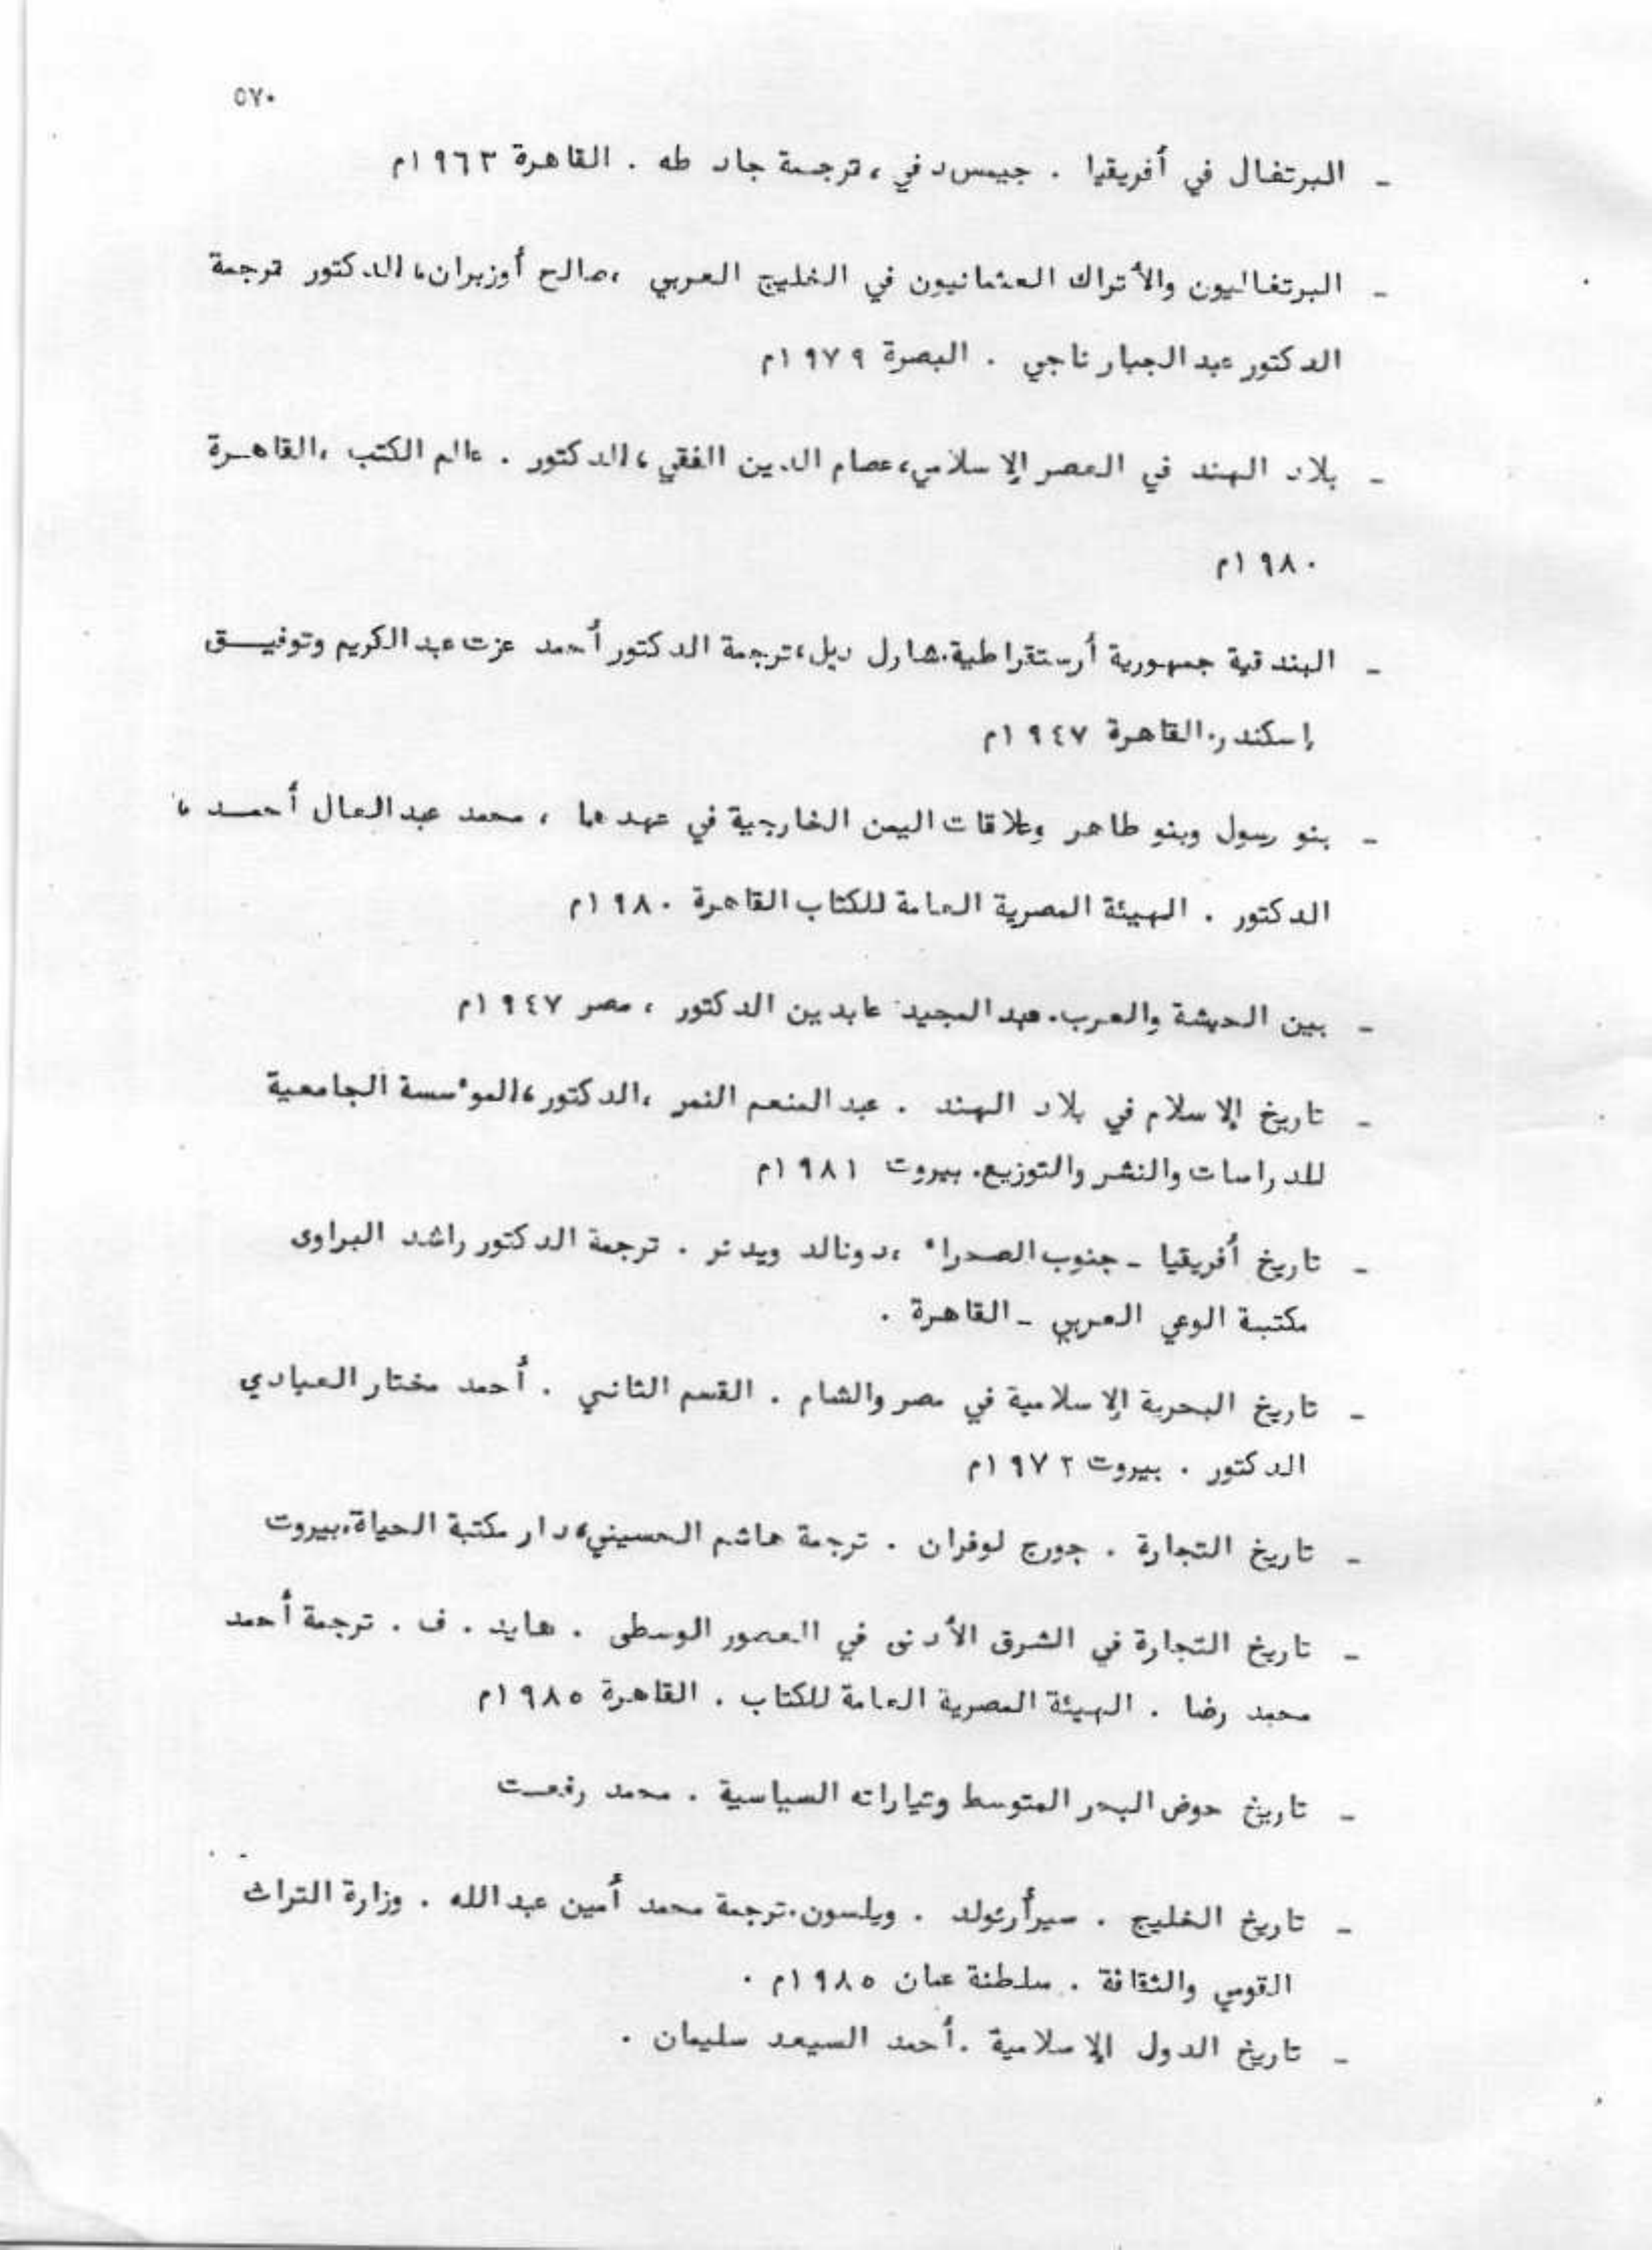 ٥٧٠
- البرتغال في أفريقيا . جيمس دفي ، ترجمة جاد طه . القاهرة ١٩٦٣م
- البرتغاليون والأتراك العثمانيون في الخليج العربي ، صالح أوزبران ، الدكتور ترجمة
الدكتور عبد الجبار ناجي . البصرة ١٩٧٩م
- بلاد الهند في العصر الإسلامي ، عصام الدين الفقي ، الدكتور . عالم الكتب ، القاهـرة
١٩٨٠م
- البندقية جمهورية أرستقراطية . شارل ديل ، ترجمة الدكتور أحمد عزت عبد الكريم وتوفيــق
إسكندر . القاهرة ١٩٤٧م
- بنو رسول وبنو طاهر وعلاقات اليمن الخارجية في عهدهما ، محمد عبد العال أحمــد ،
الدكتور . الهيئة المصرية العامة للكتاب القاهرة ١٩٨٠م
- بين الحبشة والعرب . عبد المجيد عابدين الدكتور ، مصر ١٩٤٧م
- تاريخ الإسلام في بلاد الهند . عبد المنعم النمر ، الدكتور ، المؤسسة الجامعية
للدراسات والنشر والتوزيع . بيروت ١٩٨١م
- تاريخ أفريقيا - جنوب الصحراء ، دونالد ويدنر . ترجمة الدكتور راشد البراوى
مكتبة الوعي العربي - القاهرة .
- تاريخ البحرية الإسلامية في مصر والشام . القسم الثاني . أحمد مختار العبادي
الدكتور . بيروت ١٩٧٢م
- تاريخ التجارة . جورج لوفران . ترجمة هاشم الحسيني ، دار مكتبة الحياة ، بيروت
- تاريخ التجارة في الشرق الأدنى في العصور الوسطى . هايد . ف . ترجمة أحمد
محمد رضا . الهيئة المصرية العامة للكتاب . القاهرة ١٩٨٥م
- تاريخ حوض البحر المتوسط وتياراته السياسية . محمد رفعــت
- تاريخ الخليج . سير أرنولد . ويلسون . ترجمة محمد أمين عبد الله . وزارة التراث
القومي والثقافة . سلطنة عمان ١٩٨٥م .
- تاريخ الدول الإسلامية . أحمد السيعد سليمان .